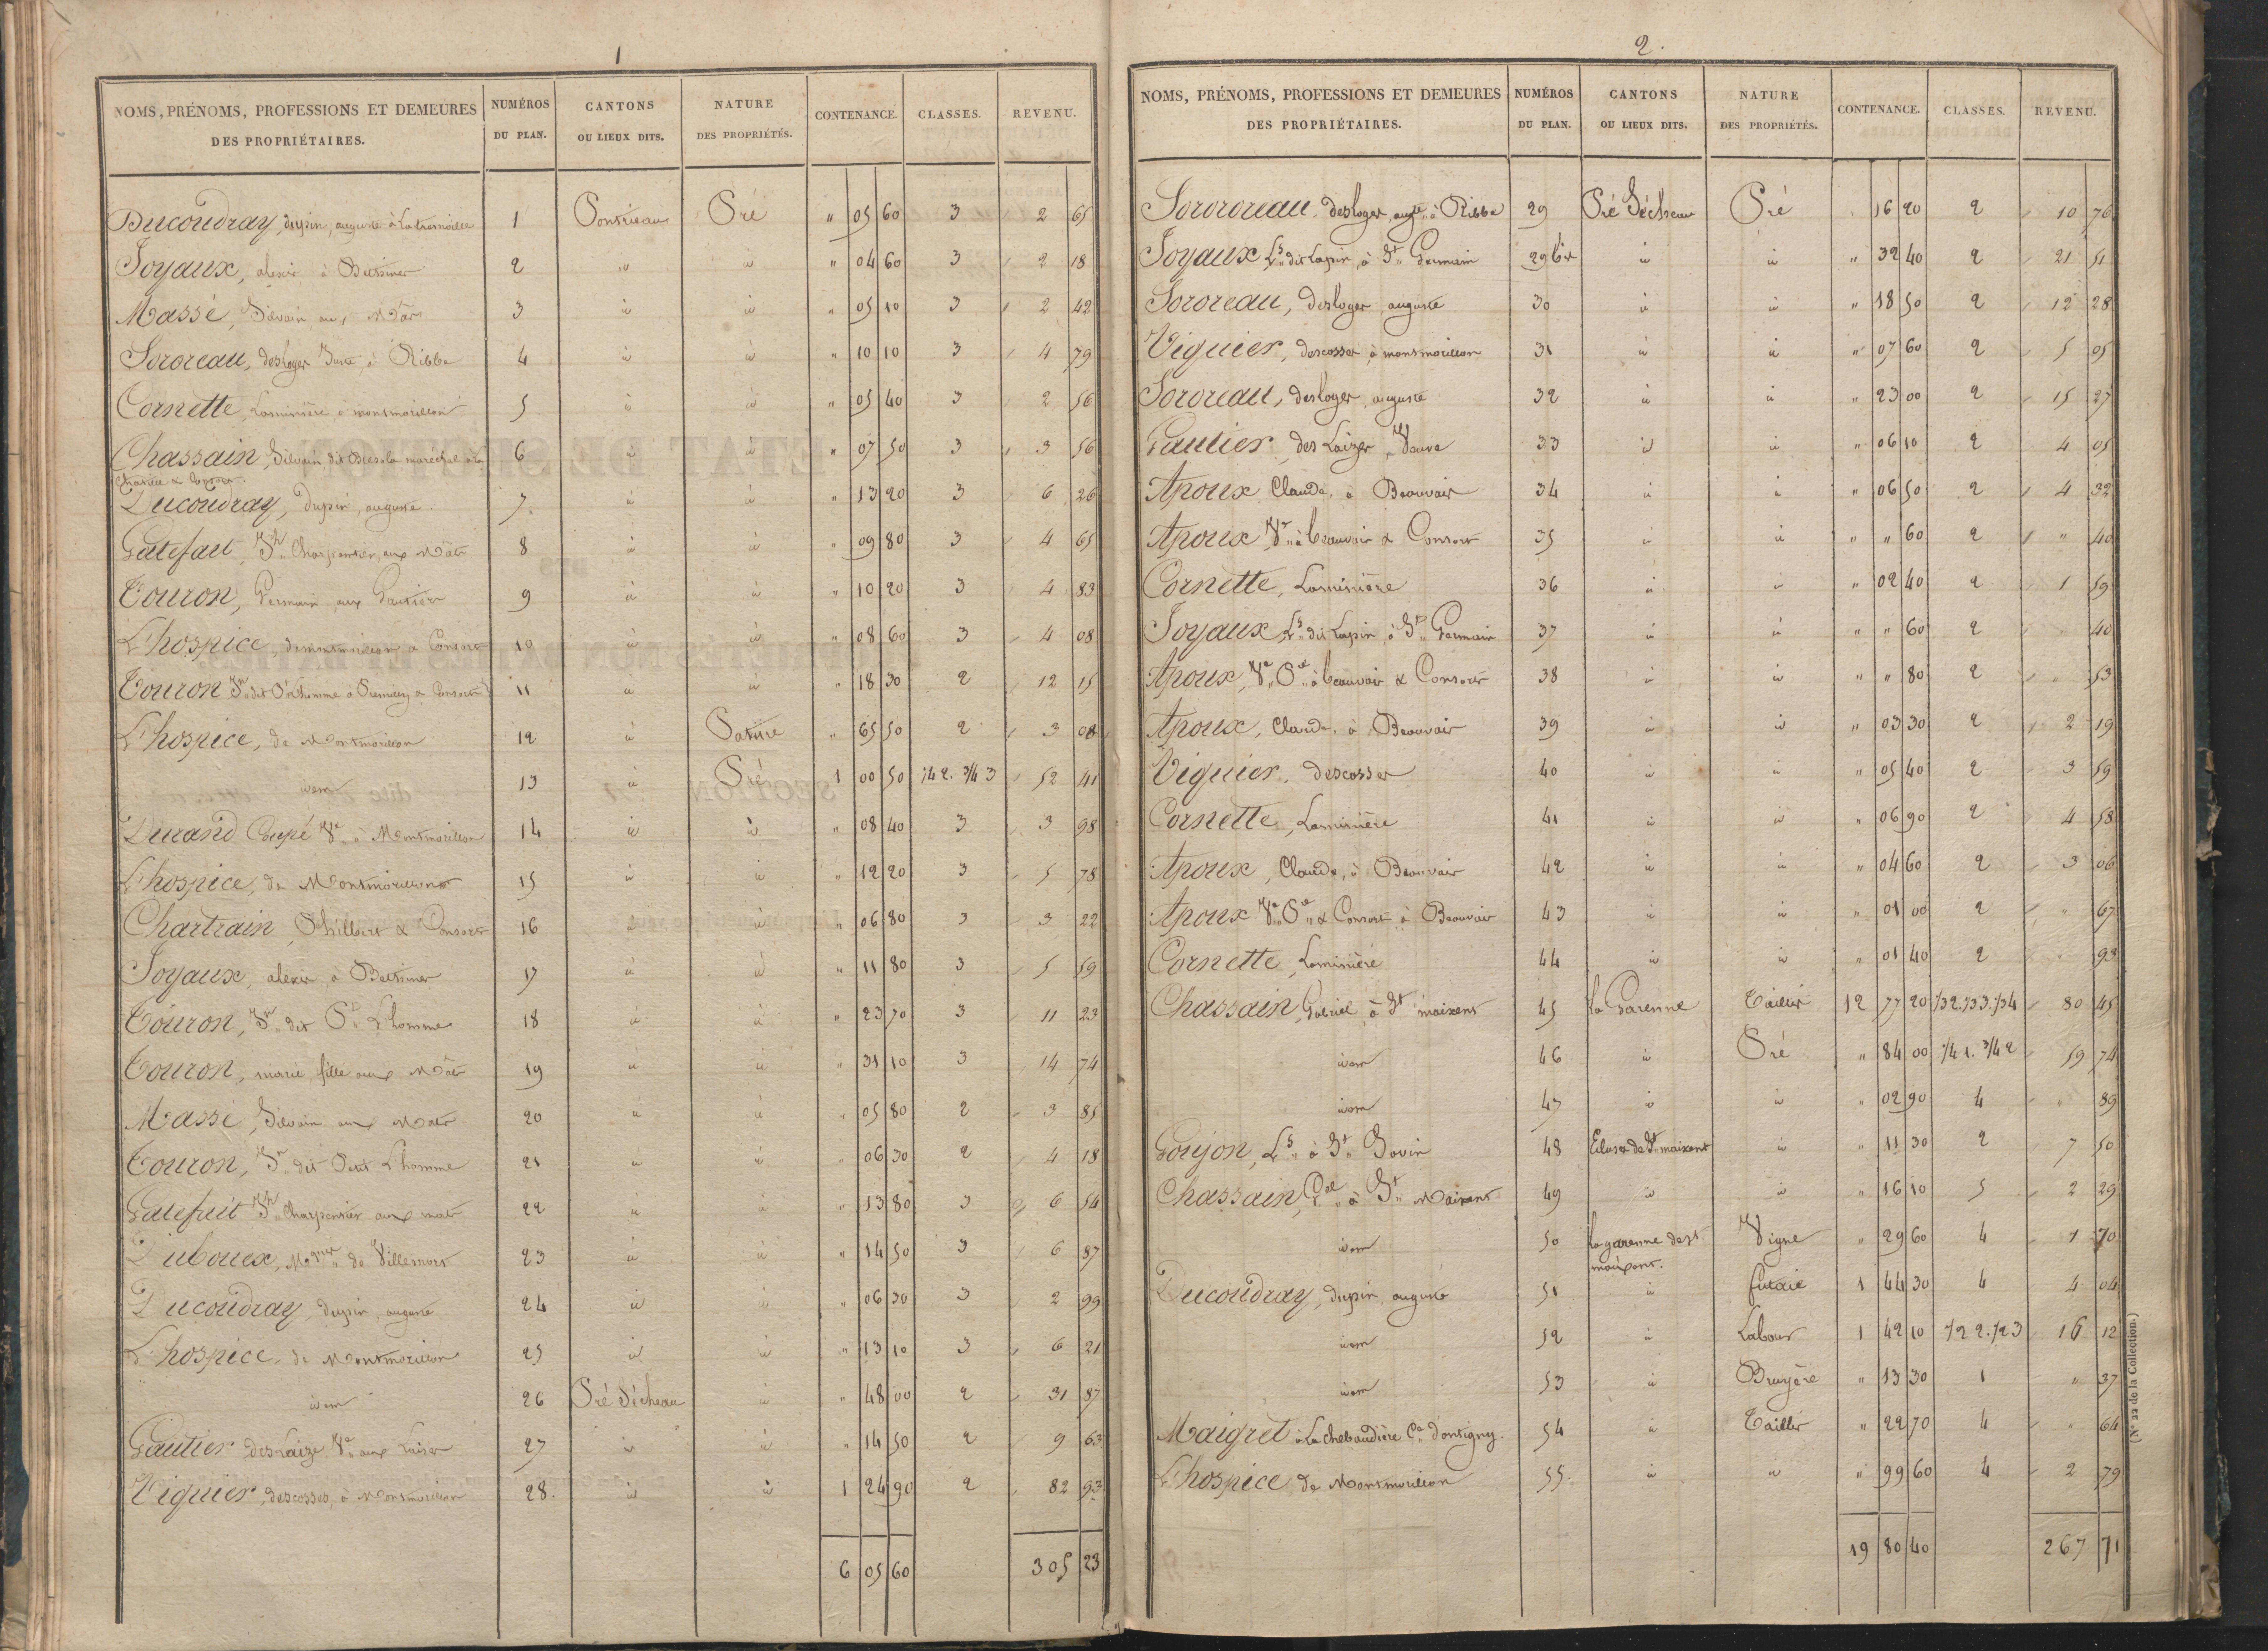 1
NOMS, PRÉNOMS, PROFESSIONS ET DEMEURES DES PROPRIÉTAIRES. NUMÉROS DU PLAN. CANTONS OU LIEUX DITS. NATURE DES PROPRIÉTÉS. CONTENANCE. CLASSES. REVENU.
Ducoudray, dupin, auguste à Latremoille 1 Pontreau Pré " 05 60 3 2 65
Joyaux, alexis à 2 id id " 04 60 3 2 18
Massé, Silvain aux Mâts 3 id id " 05 10 3 2 42
Sororeau, desloges Juste, à Ribbe 4 id id " 10 10 3 4 79
Cornette, Laminière à montmorillon 5 id id " 05 40 3 2 56
Chassain, Silvain, dit maréchal à la 6 id id " 07 50 3 3 56
Ducoudray, dupin, auguste. 7 id id " 13 20 3 6 26
Gatefait, Jh Charpentier, aux Mâts 8 id id " 09 80 3 4 65
Touron, Germain aux Gautier 9 id id " 10 20 3 4 83
L'hospice, demontmorillon & Consort 10 id id " 08 60 3 4 08
Touron Jn dit Pt L'homme à & Consorts 11 id id " 18 30 2 12 15
L'hospice, de Montmorillon 12 id Pature " 65 50 2 3 08
idem 13 id Pré 1 00 50 1/4 2. 3/4 3 52 41
Durand Coupé Ve à Montmorillon 14 id id " 08 40 3 3 98
L'hospice, de Montmorillon 15 id id " 12 20 3 5 78
Chartrain, Philbert & Consorts 16 id id " 06 80 3 3 22
Joyaux, alexis, à 17 id id " 11 80 3 5 59
Touron, Jn dit Pt L'homme 18 id id " 23 70 3 11 23
Touron, marie, fille aux Mâts 19 id id " 31 10 3 14 74
Massé, Silvain aux Mats 20 id id " 05 80 2 3 85
Touron, Jn dit Petit L'homme 21 id id " 06 30 2 4 18
Gatefait Jh Charpentier aux mats 22 id id " 13 80 3 6 54
Dubouex, de Villemort 23 id id " 14 50 3 6 87
Ducoudray, dupin, auguste 24 id id " 06 30 3 2 99
L'hospice, de Montmorillon 25 id id " 13 10 3 6 21
idem 26 Pré Sécheau id " 48 00 2 31 87
Gautier deslaize Ve aux Laises 27 id id " 14 50 2 9 63
Viguier, descosses, à Montmorillon 28. id id 1 24 90 2 82 93
6 05 60 305 23
2.
NOMS, PRÉNOMS, PROFESSIONS ET DEMEURES DES PROPRIÉTAIRES. NUMÉROS DU PLAN. CANTONS OU LIEUX DITS. NATURE DES PROPRIÉTÉS. CONTENANCE. CLASSES. REVENU.
Sorororeau desloges, augte à Ribbe 29 Pré Sécheau Pré 16 20 2 10 76
Joyaux Ls dit Lapin, à St Germain 29 bis id id " 32 40 2 21 51
Sororeau, desloges auguste 30 id id " 18 50 2 12 28
Viguier, descosses, à montmorillon 31 id id " 07 60 2 5 05
Sororeau, desloges, auguste 32 id id " 23 00 2 15 27
Gautier des Laizes, Veuve 33 id id " 06 10 2 4 05
Apoux Claude, à Beauvais 34 id id " 06 50 2 4 32
Apoux Ve à beauvais & Consort 35 id id " " 60 2 " 40
Cornette, Laminière 36 id id " 02 40 2 1 59
Joyaux, Ls dit Lapin à St Germain 37 id id " " 60 2 " 40
Apoux, Ve Pre à beauvais & Consorts 38 id id " " 80 2 " 53
Apoux, Claude, à Beauvais 39 id id " 03 30 2 2 19
Viguier, descosses 40 id id " 05 40 2 3 59
Cornette, Laminière 41 id id " 06 90 2 4 58
Apoux, Claude, à Beauvais 42 id id " 04 60 2 3 06
Apoux Ve Pre & Consort à Beauvais 43 id id " 01 00 2 " 67
Cornette, Laminière 44 id id " 01 40 2 " 93
Chassain, Gabriel, à St maixent 45 La Garenne Taillis 12 77 20 1/3 2. 1/3 3. 1/3 4 80 45
idem 46 id Pré " 84 00 1/4 1. 3/4 2 59 74
idem 47 id id " 02 90 4 " 89
Goujon, Ls à St Savin 48 Ecluse de St maixent id " 11 30 2 7 50
Chassain, Gel à St Maixent 49 id id " 16 10 5 2 29
idem 50 La garenne de St maixent. Vigne " 29 60 4 1 70
Ducoudray, dupin, auguste 51 id futaie 1 44 30 4 4 04
idem 52 id Labour 1 42 10 1/2 2. 1/2 3 16 12
idem 53 id Bruyère " 13 30 1 " 37
Maigret à La chebaudière Ce d'antigny. 54 id Taillis " 22 70 4 " 64
L'hospice, de Montmorillon 55. id id " 99 60 4 2 79
19 80 40 267 71
(N° 22 de la Collection.)